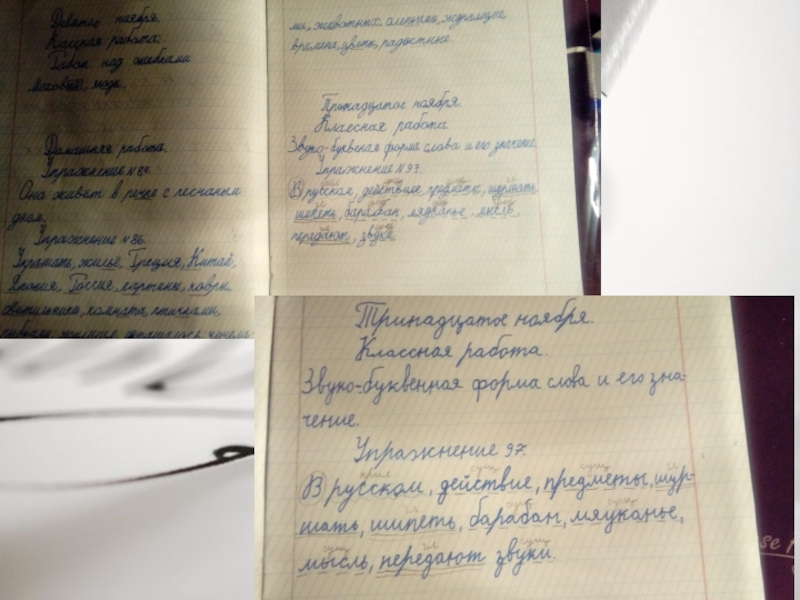 Девятое ноября.
Классная работа.
над ошибками
Домашняя работа.
Упражнение №84.
Она живёт в речке с песчаным
дном.
Упражнение №86.
Украшать, жильё, Греция, Китай,
Япония, Россия, картины, ковры
светильники, комната, птичками,
времена, цветы, радостные.
Тринадцатое ноября.
Классная работа
Звуко-буквеная форма слова и его значение.
Упражнение №97.
В русском, действие, предметы, шуршать,
шипеть, барабан, мяуканье, мысль,
передают, звуки.
Тринадцатое ноября.
Классная работа.
Звуко-буквенная форма слова и его зна-
чение.
Упражнение 97.
прил сущ сущ гл
В русском, действие, предметы, шур-
гл сущ сущ
шать, шипеть, барабан, мяуканье,
сущ гл сущ
мысль, передают звуки.